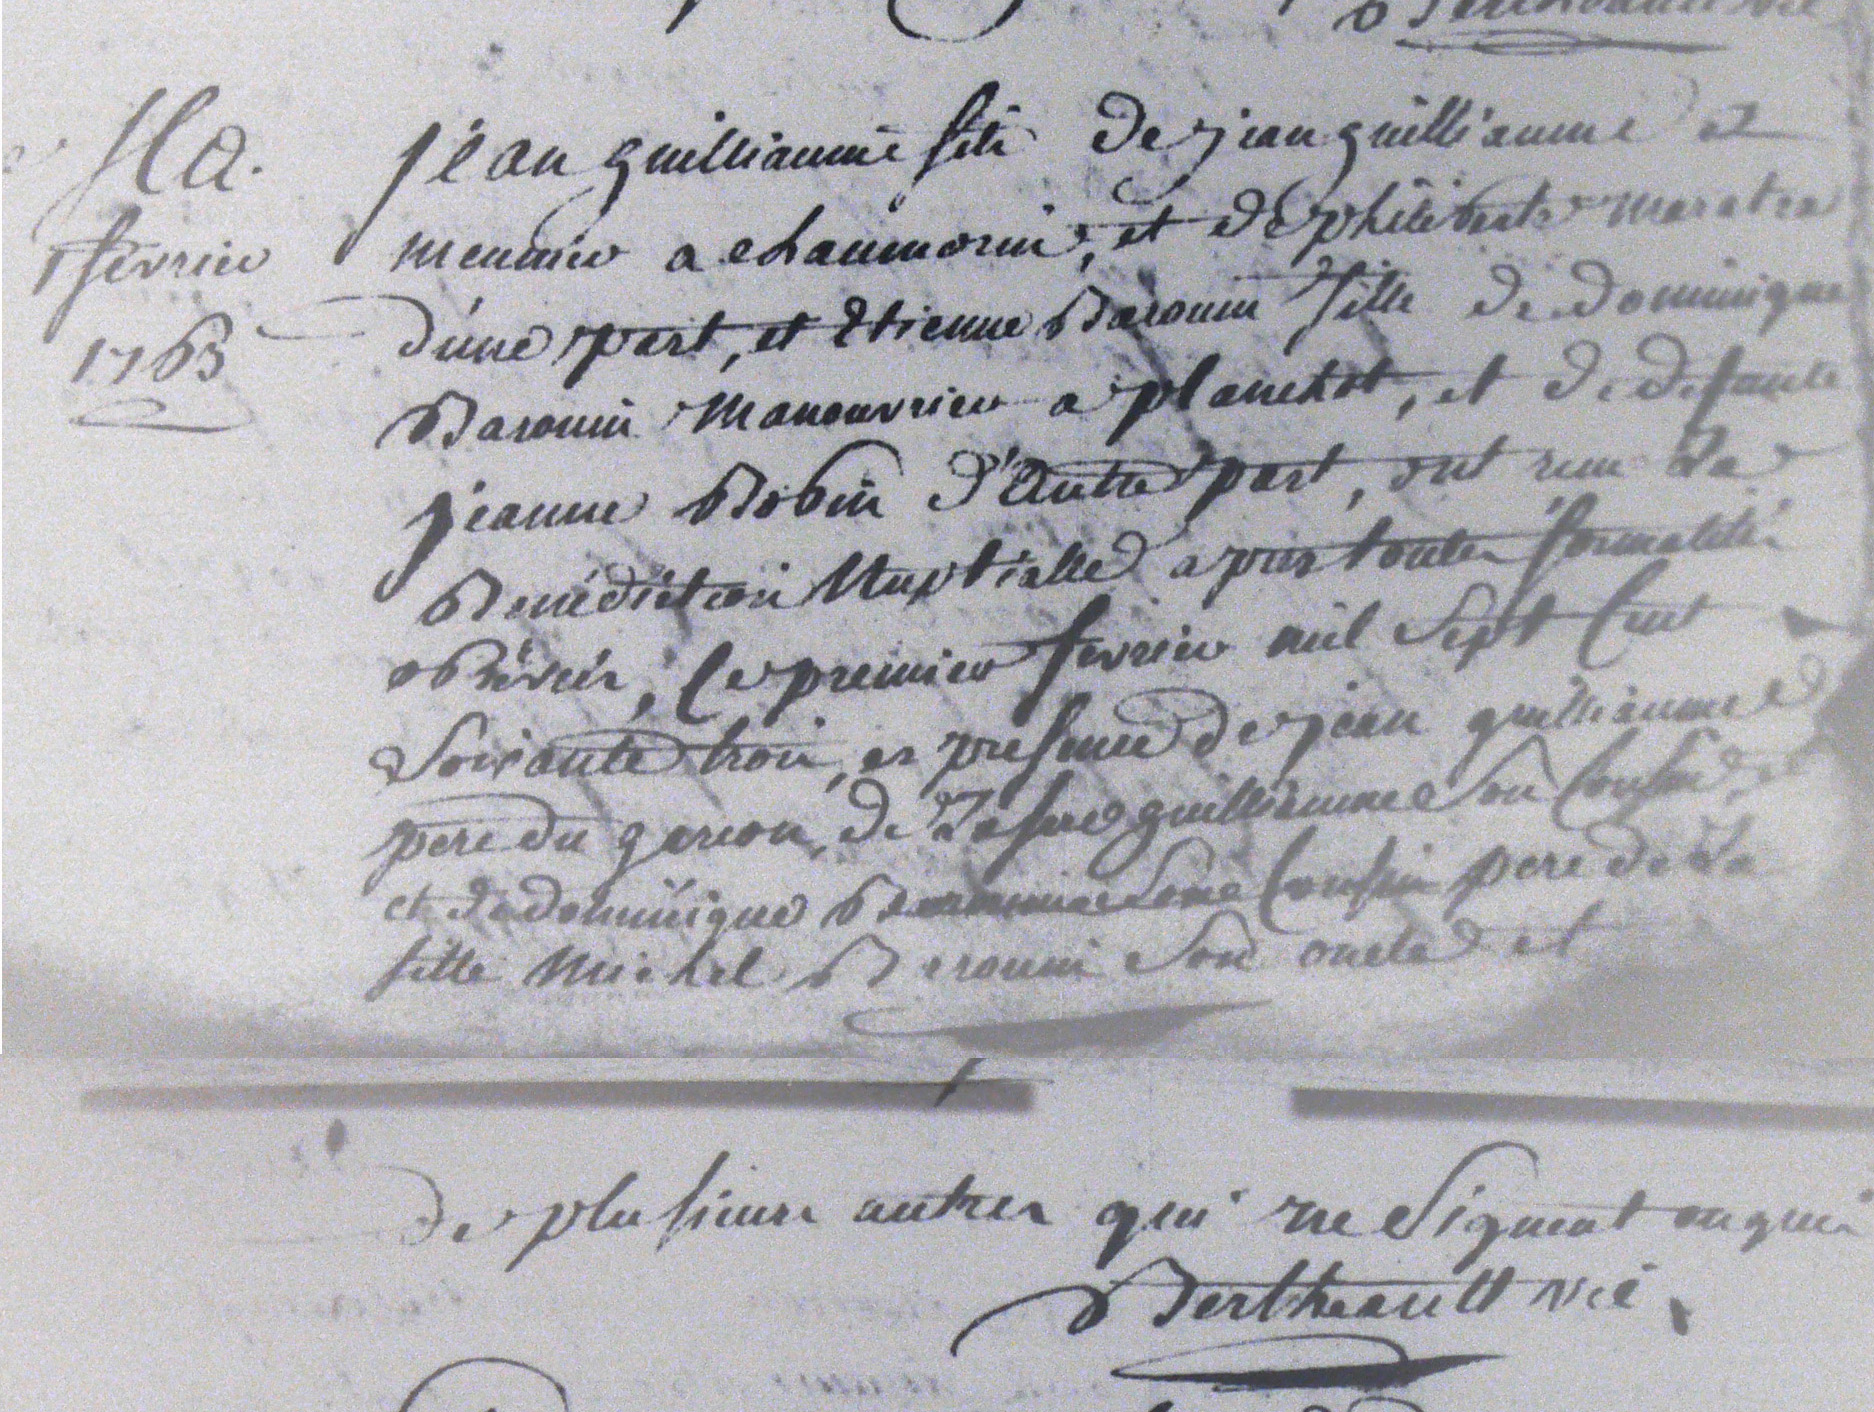 Ma.
1 fevrier
1763
jean guilliaume fils de jean guilliaume et
meunier a chaumorin, et de philiberte
d'une part, et Etienne Baronin fille de dominique
Baronin manouvrier a planchot, et de defunte
jeanne Robin d'autre part, ont reçu la
Benédiction Nuptialle apres toutes formalités
observées, Le premier fevrier mil sept Cent
soixante trois, en presence de jean guilliaume
pere du garcon, de guilliaume son Cousin,
et de dominique Cousin pere de la
fille Michel Baronin son oncle et
de plusieurs autres qui ne signent enquis
Bertheault vic